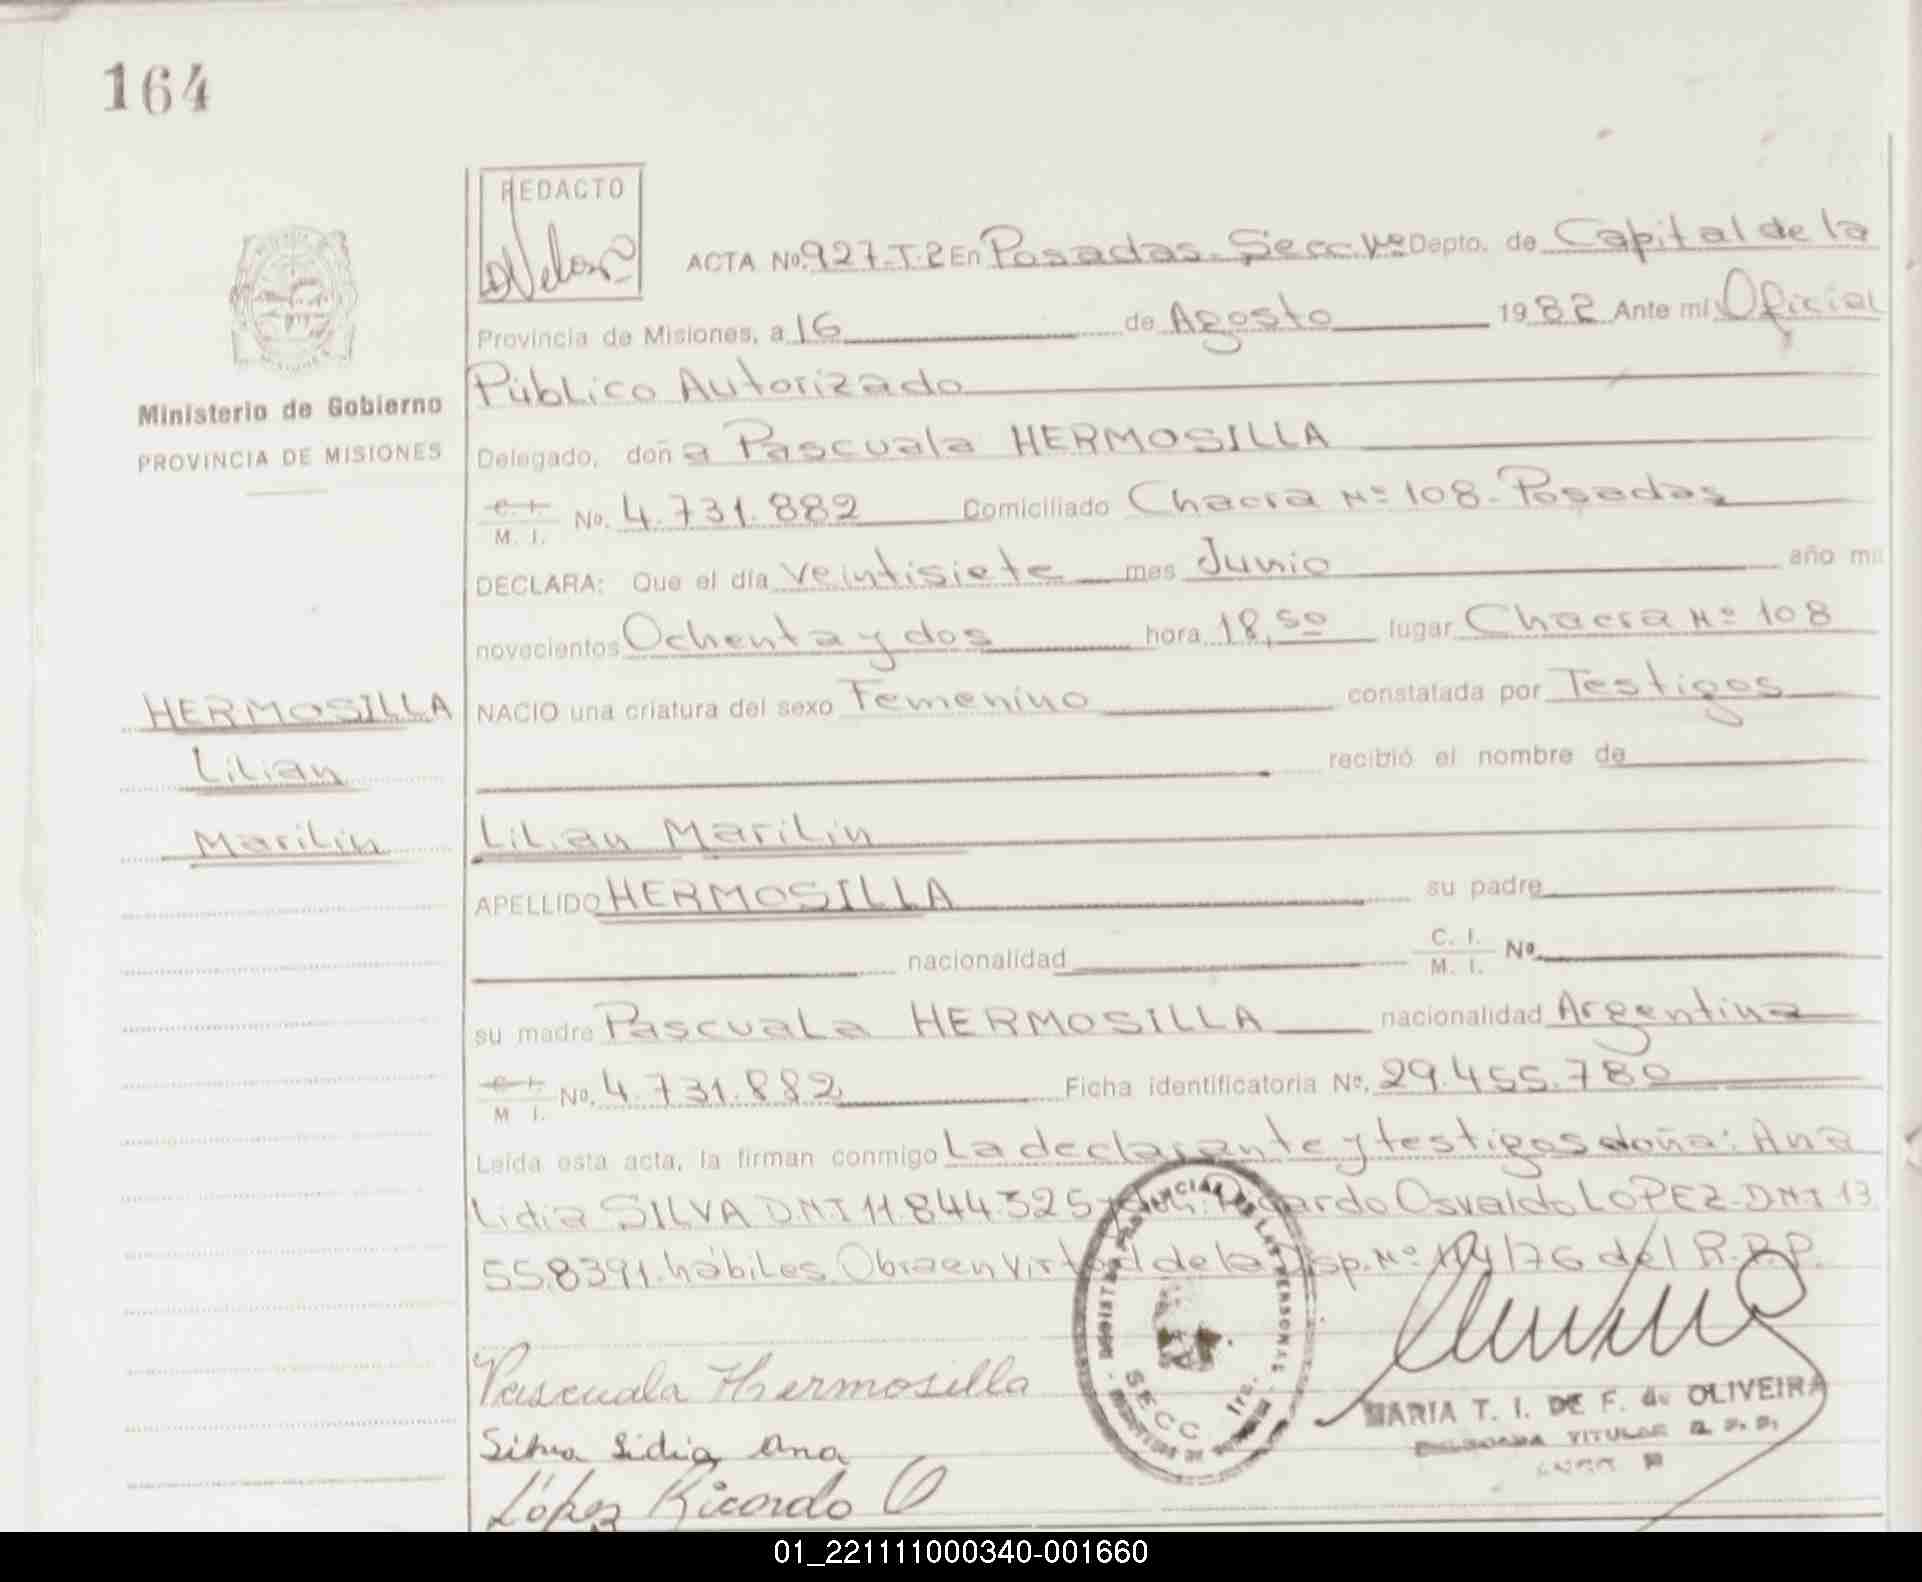 164
REDACTO
ACTA No. 927-T.2 En Posadas - Secc. 1ra Depto. de Capital de la
Provincia de Misiones, a 16 de Agosto 1982 Ante mí Oficial
Público Autorizado
Ministerio de Gobierno
PROVINCIA DE MISIONES
Delegado, doña Pascuala HERMOSILLA
C. I. M. I. No. 4.731.882 Domiciliado Chacra Nº 108 - Posadas
DECLARA: Que el día veintisiete mes Junio año mil
novecientos Ochenta y dos hora 18,50 lugar Chacra Nº 108
HERMOSILLA
Lilian
Marilin
NACIO una criatura del sexo Femenino constatada por Testigos
recibió el nombre de
Lilian Marilin
APELLIDO HERMOSILLA su padre
nacionalidad C. I. M. I. No.
su madre Pascuala HERMOSILLA nacionalidad Argentina
C. I. M. I. No. 4.731.882 Ficha identificatoria No. 29.455.780
Leída esta acta, la firman conmigo La declarante y testigos doña: Ana
Lidia SILVA D.N.I 11.844.325 y don: Ricardo Osvaldo LOPEZ - DNI 13
558391. hábiles. Obra en virtud de la Disp. Nº /76 del R.P.P.
Pascuala Hermosilla
Silva Lidia Ana
López Ricardo O
REGISTRO PROVINCIAL DE LAS PERSONAS
SECC 1ra.
MARIA T. I. DE F. de OLIVEIRA
TITULAR R. P. P.
01_221111000340-001660